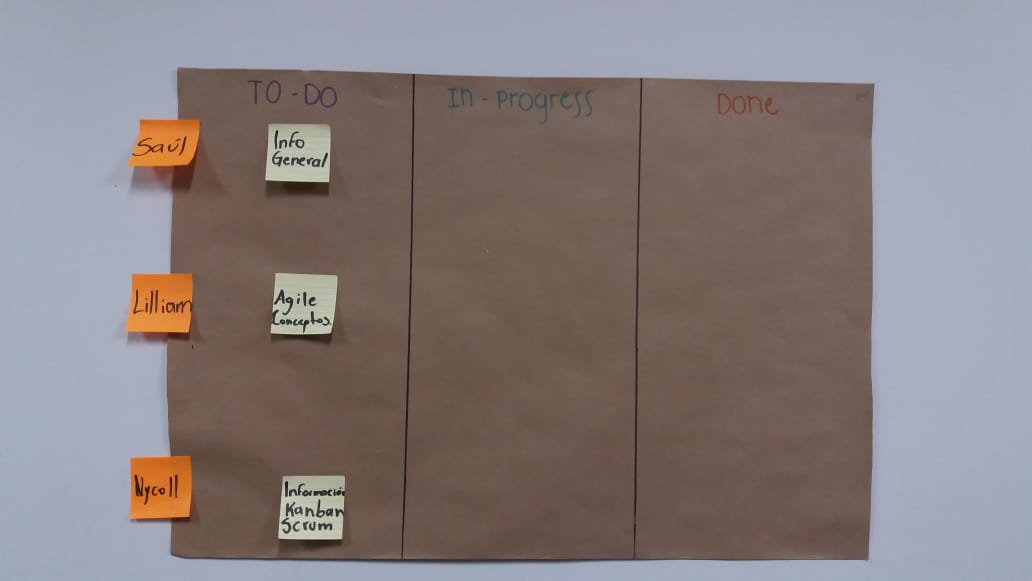 TO-DO
In-progress
Done
Saúl
Info
General
Lilliam
Agile
Conceptos.
Nycoll
Información
Kanban
Scrum